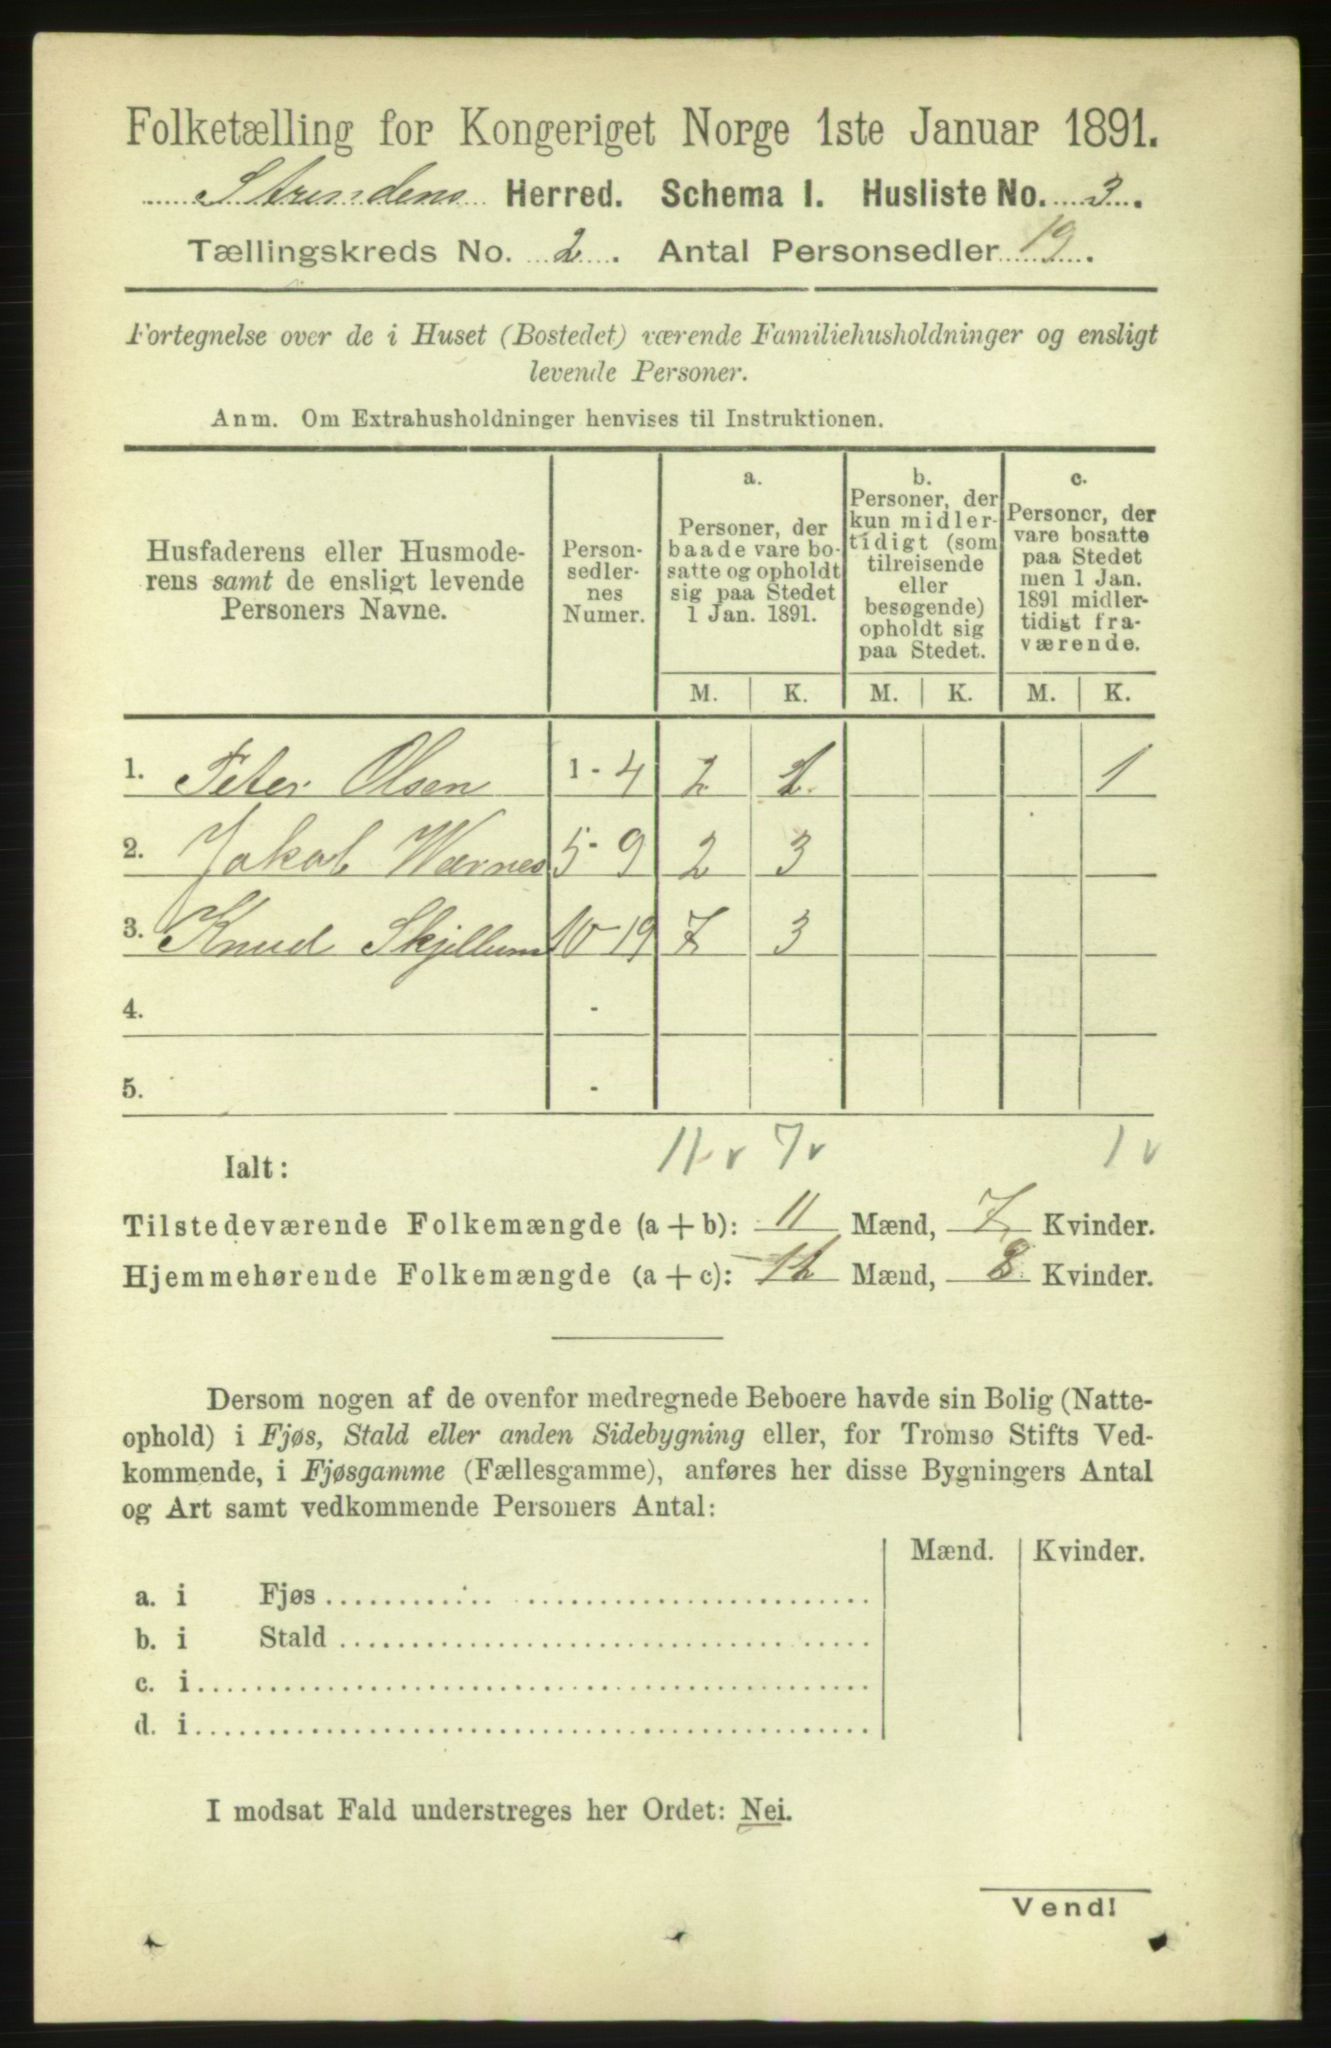 Folketælling for Kongeriget Norge 1ste Januar 1891.
Strindens Herred. Schema I. Husliste No. 3.
Tællingskreds No. 2. Antal Personsedler 19.
Fortegnelse over de i Huset (Bostedet) værende Familiehusholdninger og ensligt
levende Personer.
Anm. Om Extrahusholdninger henvises til Instruktionen.
Husfaderens eller Husmode-
rens samt de ensligt levende
Personers Navne.
Person-
sedler-
nes
Numer.
a.
Personer, der
baade vare bo-
satte og opholdt
sig paa Stedet
1 Jan. 1891.
b.
Personer, der
kun midler-
tidigt (som
tilreisende
eller
besøgende)
opholdt sig
paa Stedet.
c.
Personer, der
vare bosatte
paa Stedet
men 1 Jan.
1891 midler-
tidigt fra-
værende.
M. K. M. K. M. K.
1. Peter Olsen 1 - 4 2 1 1
2. Jakob Wærnes 5 - 9 2 3
3. Knud Skjellum 10 - 19 7 3
4. -
5. -
Ialt: 11 v 7 v 1 v
Tilstedeværende Folkemængde (a + b): 11 Mænd, 7 Kvinder.
Hjemmehørende Folkemængde (a + c): 11 Mænd, 8 Kvinder.
Dersom nogen af de ovenfor medregnede Beboere havde sin Bolig (Natte-
ophold) i Fjøs, Stald eller anden Sidebygning eller, for Tromsø Stifts Ved-
kommende, i Fjøsgamme (Fællesgamme), anføres her disse Bygningers Antal
og Art samt vedkommende Personers Antal:
Mænd. Kvinder.
a. i Fjøs
b. i Stald
c. i
d. i
I modsat Fald understreges her Ordet: Nei.
Vend!